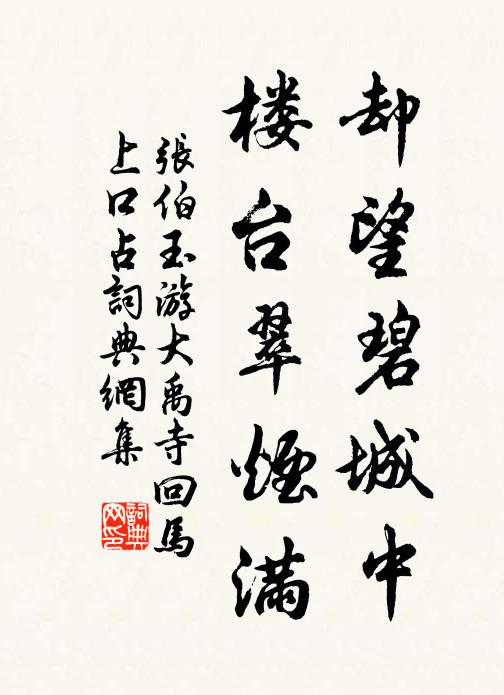 却望碧城中
楼台翠烟满
張伯玉游大禹寺回馬
上口占詞典網集
詞典
网印